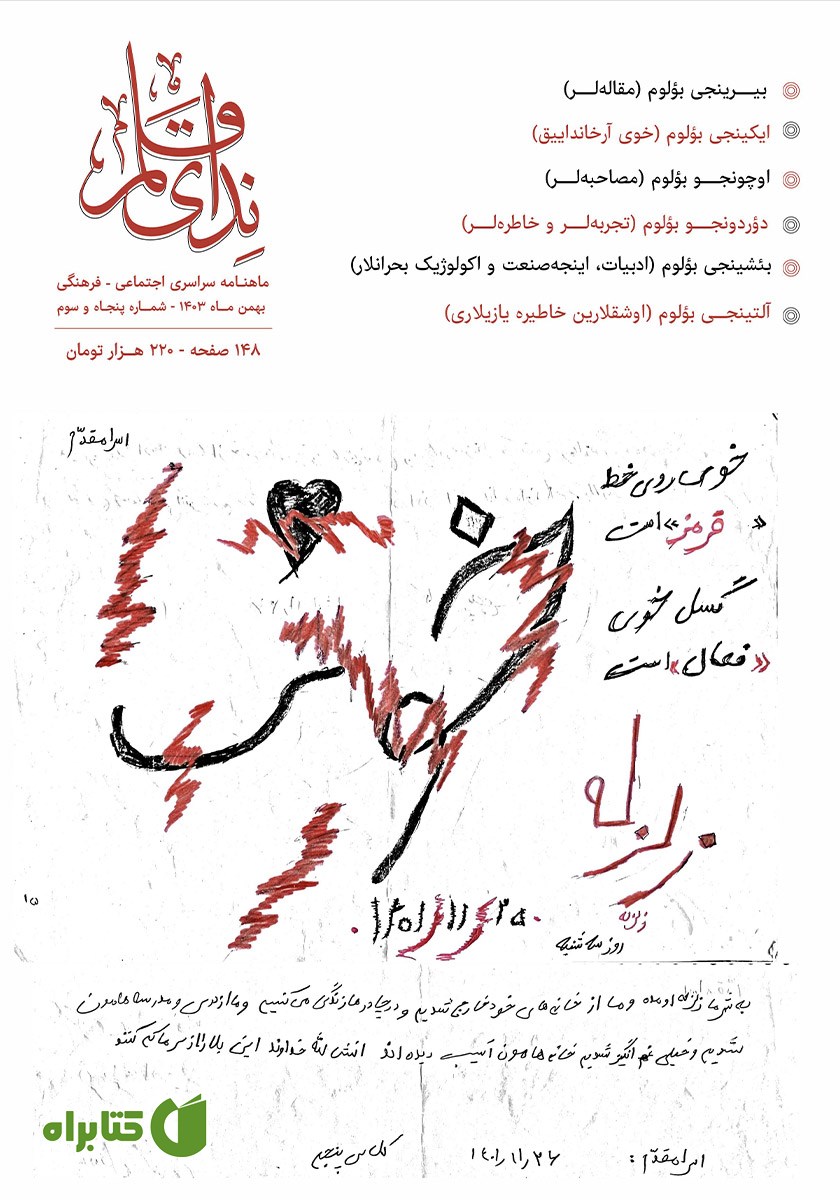 ندای قلم
ماهنامه سراسری اجتماعی - فرهنگی
بهمن ماه ۱۴۰۳ - شماره پنجاه و سوم
۱۴۸ صفحه - ۲۲۰ هزار تومان
بیرینجی بؤلوم (مقاله‌لر)
ایکینجی بؤلوم (خوی آرخانداییق)
اوچونجو بؤلوم (مصاحبه‌لر)
دؤردونجو بؤلوم (تجربه‌لر و خاطره‌لر)
بئشینجی بؤلوم (ادبیات، اینجه‌صنعت و اکولوژیک بحرانلار)
آلتینجی بؤلوم (اوشقلارین خاطیره یازیلاری)
اسرا مقدّم
خوی روی خط
«قرمز» است
گسل خوی
«فعال» است
خوی
زلزله
زلزله
۱۴۰۱/۱۱/۲۵
روز سه شنبه
۱۵
به شهر ما زلزله اومده و ما از خانه‌های خود خارج شدیم و در چادرها زندگی می‌کنیم و ما از درس و مدرسه هامون
شدیم و خیلی غم انگیز شدیم خانه هامون آسیب دیده اند انشالله خداوند این بلا را از سر ما کم کنند
اسرا مقدّم: ۱۴۰۱/۱۱/۲۶ کلاس پنجم
کتابراه